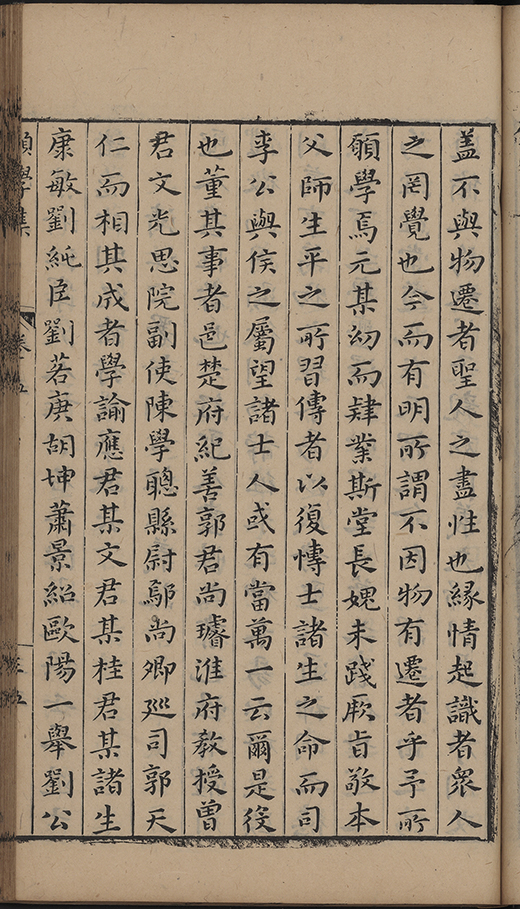 盖不與物遷者聖人之盡性也縁情起識者衆人
之罔覺也今而有明所謂不因物有遷者乎予所
願學焉元某幼而肄業斯堂長媿未踐厥旨敬本
父師生平之所習傳者以復愽士諸生之命而司
李公與侯之屬望諸士人或有當萬一云爾是役
也董其事者邑楚府紀善郭君尚璿淮府教授曽
君文光思院副使陳學聰縣尉鄢尚卿廵司郭天
仁而相其成者學諭應君某文君某桂君某諸生
康敏劉純臣劉若庚胡坤蕭景紹歐陽一舉劉公
願學集
卷
五